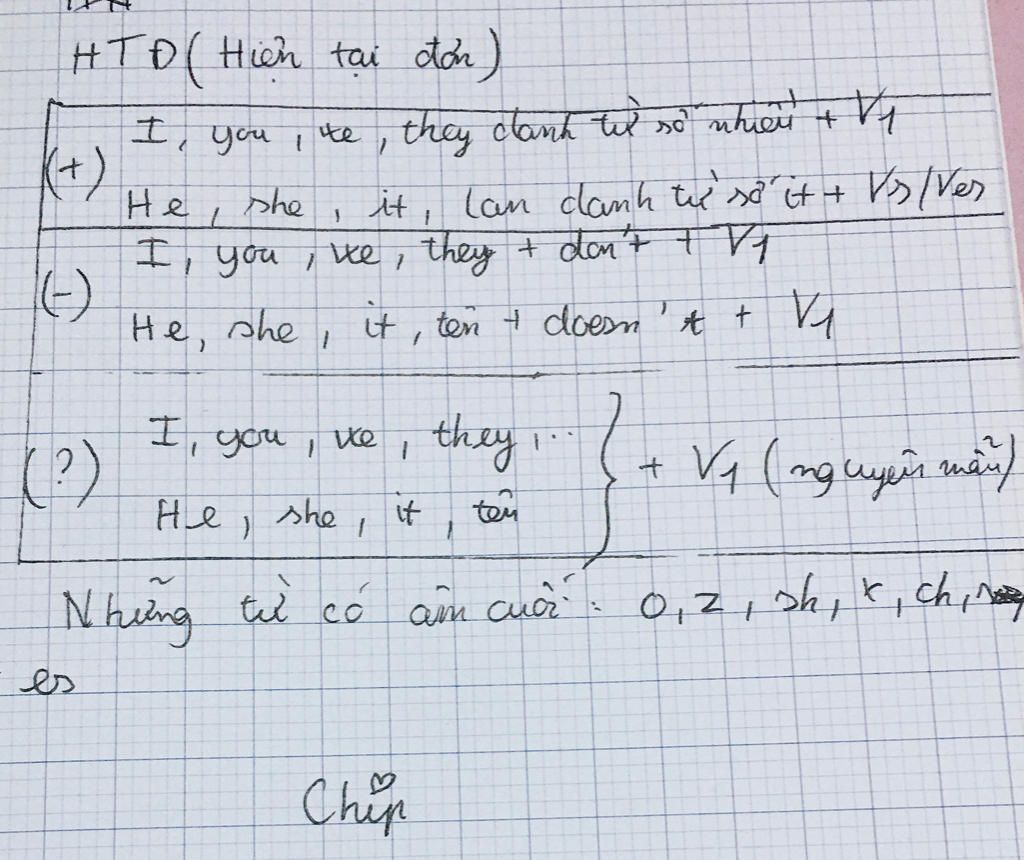 HTĐ (Hiện tại đơn)
(+) I, you, we, they danh từ số nhiều + V1
He, she, it, Lan danh từ số ít + Vs/Ves
(-) I, you, we, they + don't + V1
He, she, it, tên + doesn't + V1
(?) I, you, we, they,..
He, she, it, tên
} + V1 (nguyên mẫu)
Những từ có âm cuối: o, z, sh, x, ch,
es
Chip